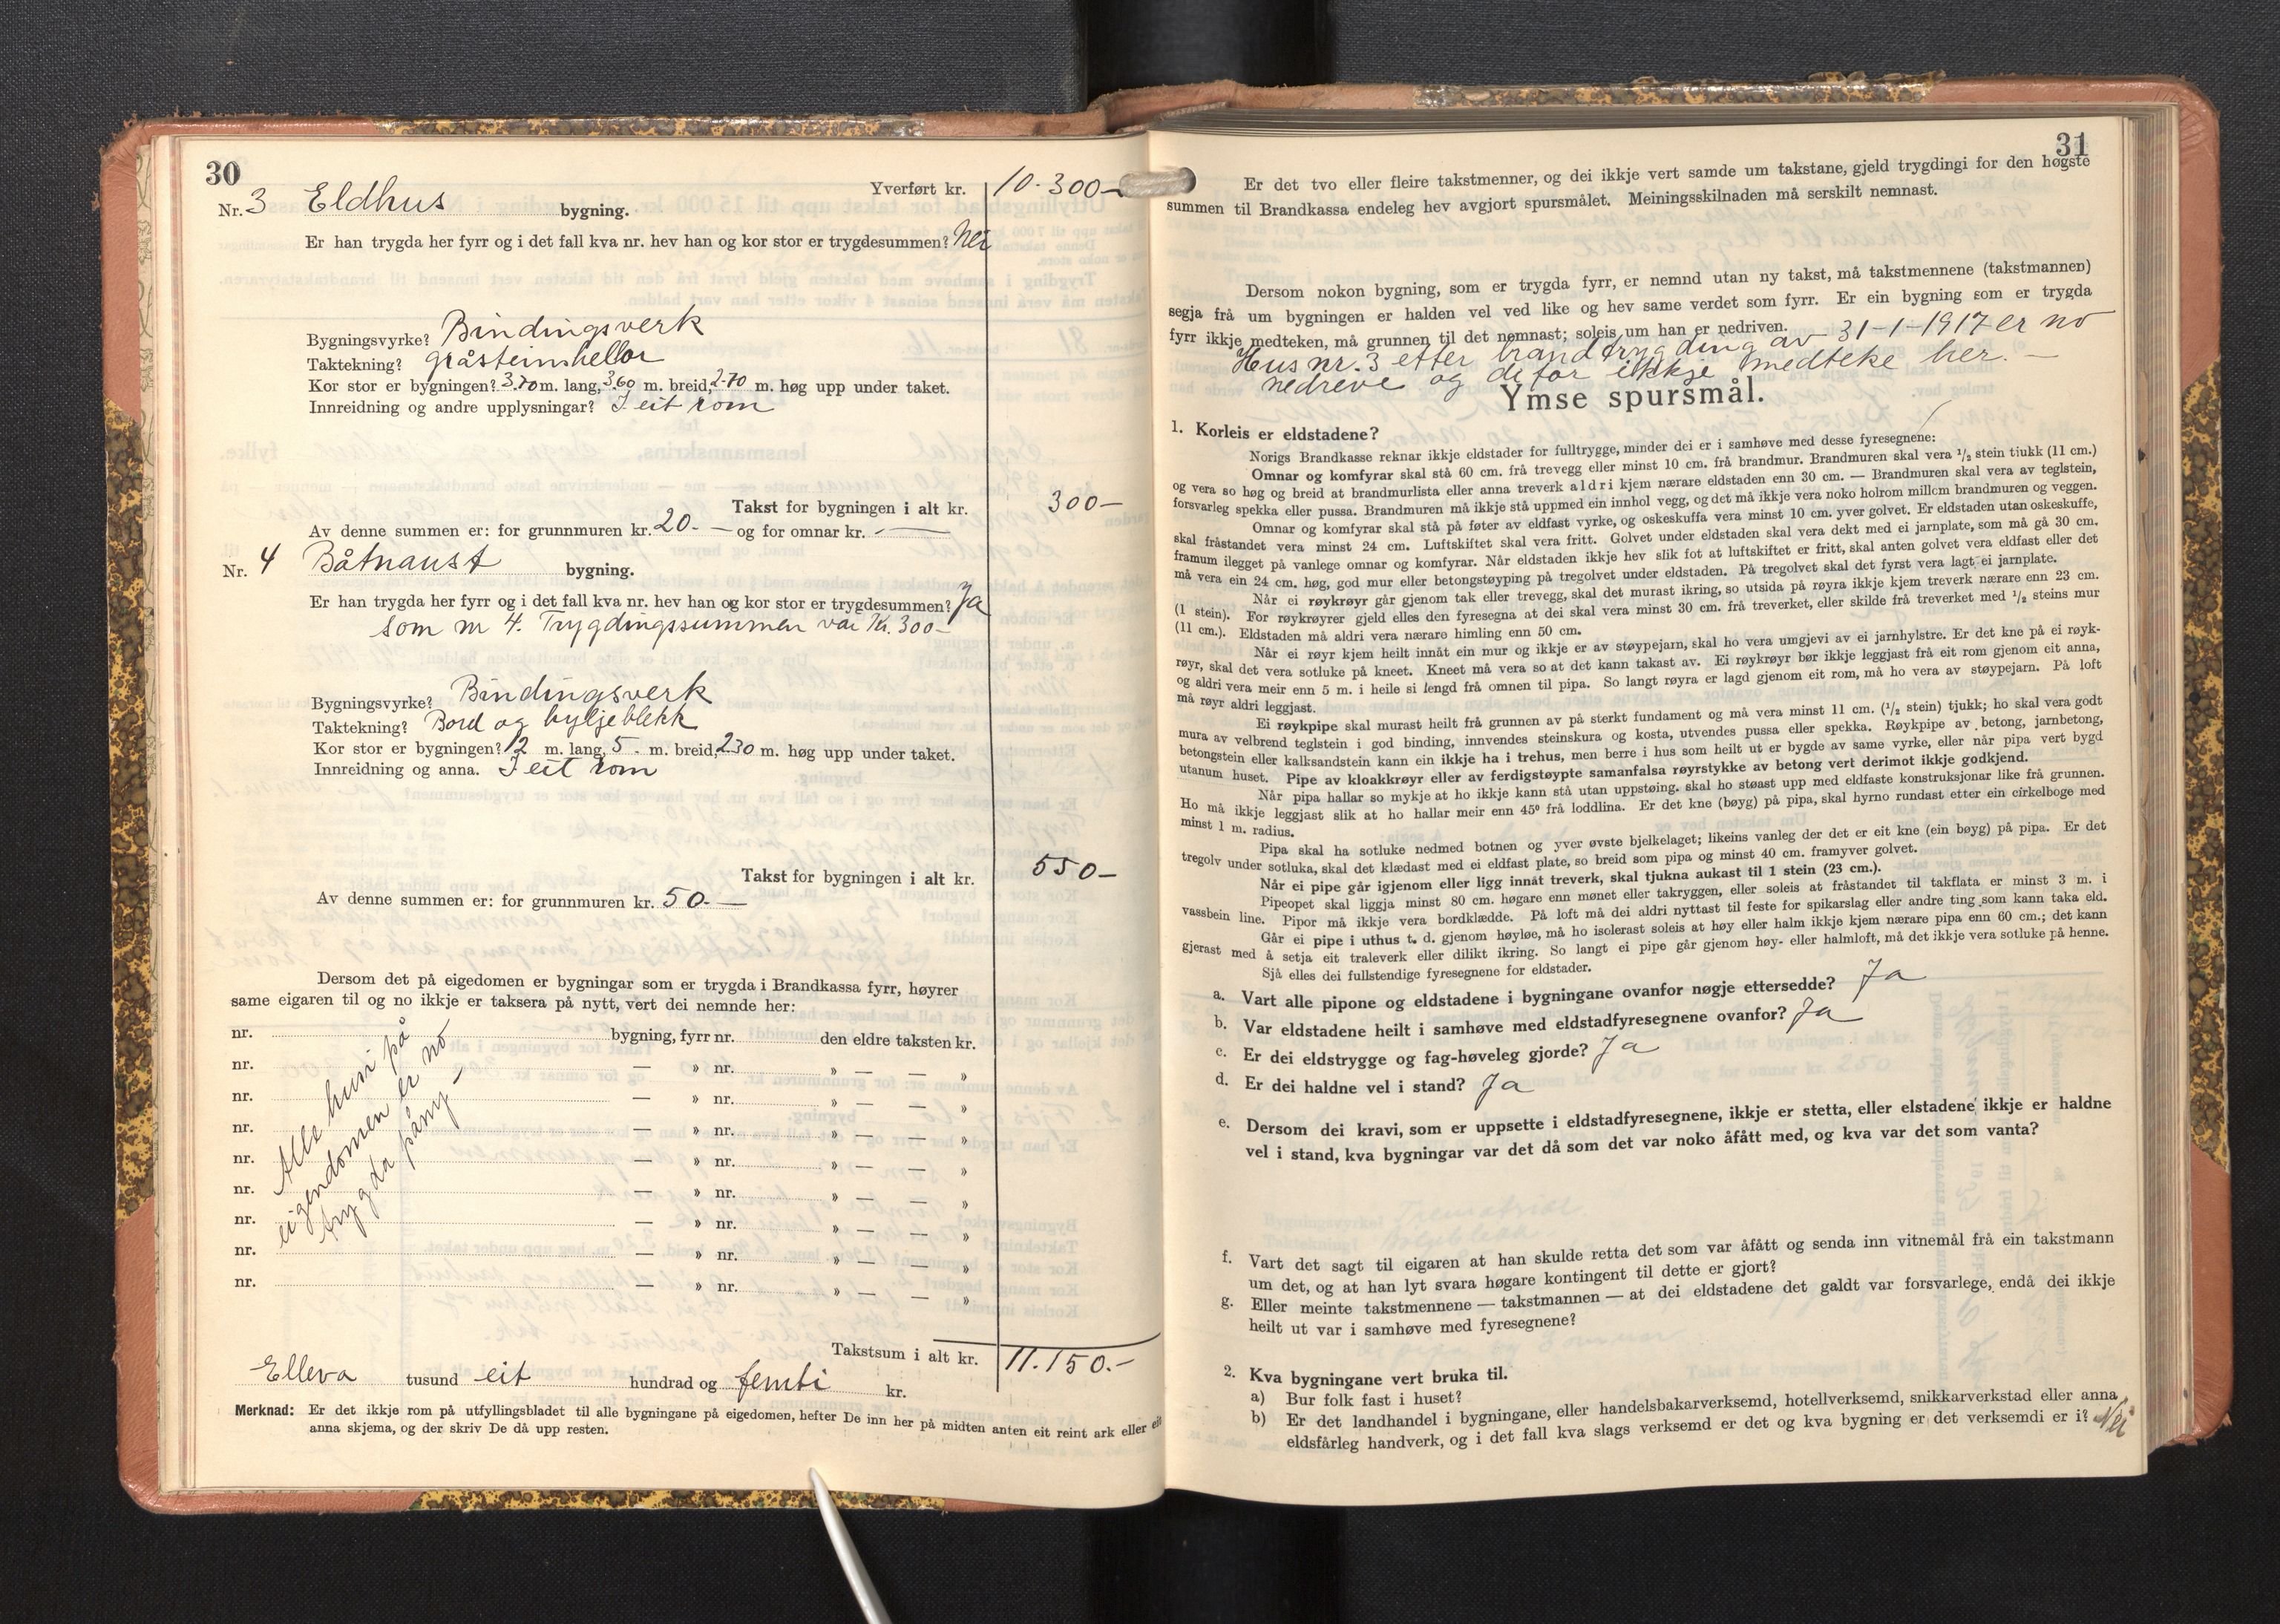 30
Yverført kr. 10.300-
Nr. 3 Eldhus bygning.
Er han trygda her fyrr og i det fall kva nr. hev han og kor stor er trygdesummen? Nei
Bygningsvyrke? Bindingsverk
Taktekning? gråsteinshellor
Kor stor er bygningen? 3.70 m. lang, 3.60 m. breid, 2.70 m. høg upp under taket.
Innreidning og andre upplysningar? I eit rom
Takst for bygningen i alt kr. 300-
Av denne summen er: for grunnmuren kr. 20.- og for omnar kr. -
Nr. 4 Båtnaust bygning.
Er han trygda her fyrr og i det fall kva nr. hev han og kor stor er trygdesummen? Ja
som nr 4. Trygdingssummen var Kr. 300-
Bygningsvyrke? Bindingsverk
Taktekning? Bord og bylgjeblekk
Kor stor er bygningen? 12 m. lang, 5 m. breid, 2.30 m. høg upp under taket.
Innreidning og anna. I eit rom
Takst for bygningen i alt kr. 550-
Av denne summen er: for grunnmuren kr. 50.-
Dersom det på eigedomen er bygningar som er trygda i Brandkassa fyrr, høyrer
same eigaren til og no ikkje er taksera på nytt, vert dei nemnde her:
nr. bygning, fyrr nr. den eldre taksten kr.
nr. — » nr. » — — »
nr. — » nr. » — — »
nr. — » nr. » — — »
nr. — » nr. » — — »
nr. — » nr. » — — »
nr. — » nr. » — — »
nr. — » nr. » — — »
nr. — » nr. » — — »
Alle husi på
eigendomen er no
trygda påny -
Takstsum i alt kr. 11.150.-
Elleva tusund eit hundrad og femti kr.
Merknad: Er det ikkje rom på utfyllingsbladet til alle bygningane på eigedomen, hefter De inn her på midten anten eit reint ark eller eit
anna skjema, og der skriv De då upp resten.
31
Er det tvo eller fleire takstmenner, og dei ikkje vert samde um takstane, gjeld trygdingi for den høgste
summen til Brandkassa endeleg hev avgjort spursmålet. Meiningsskilnaden må serskilt nemnast.
Dersom nokon bygning, som er trygda fyrr, er nemnd utan ny takst, må takstmennene (takstmannen)
segja frå um bygningen er halden vel ved like og hev same verdet som fyrr. Er ein bygning som er trygda
fyrr ikkje medteken, må grunnen til det nemnast; soleis um han er nedriven.
Hus nr. 3 etter brandtrygding av 31-1-1917 er no
nedreve og difor ikkje medteke her. -
Ymse spursmål.
1. Korleis er eldstadene?
Norigs Brandkasse reknar ikkje eldstader for fulltrygge, minder dei er i samhøve med desse fyresegnene:
Omnar og komfyrar skal stå 60 cm. frå trevegg eller minst 10 cm. frå brandmur. Brandmuren skal vera 1/2 stein tjukk (11 cm.)
og vera so høg og breid at brandmurlista eller anna treverk aldri kjem nærare eldstaden enn 30 cm. — Brandmuren skal vera av teglstein,
forsvarleg spekka eller pussa. Brandmuren må ikkje stå uppmed ein innhol vegg, og det må ikkje vera noko holrom millom brandmuren og veggen.
Omnar og komfyrar skal stå på føter av eldfast vyrke, og oskeskuffa vera minst 10 cm. yver golvet. Er eldstaden utan oskeskuffe,
skal fråstandet vera minst 24 cm. Luftskiftet skal vera fritt. Golvet under eldstaden skal vera dekt med ei jarnplate, som må gå 30 cm.
framum ilegget på vanlege omnar og komfyrar. Når eldstaden ikkje hev slik fot at luftskiftet er fritt, skal anten golvet vera eldfast eller det
må vera ein 24 cm. høg, god mur eller betongstøyping på tregolvet under eldstaden. På tregolvet skal det fyrst vera lagt ei jarnplate.
Når ei røykrøyr går gjenom tak eller trevegg, skal det murast ikring, so utsida på røyra ikkje kjem treverk nærare enn 23 cm.
(1 stein). For røykrøyrer gjeld elles den fyresegna at dei skal vera minst 30 cm. frå treverket, eller skilde frå treverket med 1/2 steins mur
(11 cm.). Eldstaden må aldri vera nærare himling enn 50 cm.
Når ei røyr kjem heilt innåt ein mur og ikkje er av støypejarn, skal ho vera umgjevi av ei jarnhylstre. Er det kne på ei røyk-
røyr, skal det vera sotluke på kneet. Kneet må vera so at det kann takast av. Ei røykrøyr bør ikkje leggjast frå eit rom gjenom eit anna,
og aldri vera meir enn 5 m. i heile si lengd frå omnen til pipa. So langt røyra er lagd gjenom eit rom, må ho vera av støypejarn. På loft
må røyr aldri leggjast.
Ei røykpipe skal murast heilt frå grunnen av på sterkt fundament og må vera minst 11 cm. (1/2 stein) tjukk; ho skal vera godt
mura av velbrend teglstein i god binding, innvendes steinskura og kosta, utvendes pussa eller spekka. Røykpipe av betong, jarnbetong,
betongstein eller kalksandstein kann ein ikkje ha i trehus, men berre i hus som heilt ut er bygde av same vyrke, eller når pipa vert bygd
utanum huset. Pipe av kloakkrøyr eller av ferdigstøypte samanfalsa røyrstykke av betong vert derimot ikkje godkjend.
Når pipa hallar so mykje at ho ikkje kann stå utan uppstøing, skal ho støast upp med eldfaste konstruksjonar like frå grunnen.
Ho må ikkje leggjast slik at ho hallar meir enn 45° frå loddlina. Er det kne (bøyg) på pipa, skal hyrno rundast etter ein cirkelboge med
minst 1 m. radius.
Pipa skal ha sotluke nedmed botnen og yver øvste bjelkelaget; likeins vanleg der det er eit kne (ein bøyg) på pipa. Er det
tregolv under sotluka, skal det klædast med ei eldfast plate, so breid som pipa og minst 40 cm. framyver golvet.
Når ei pipe går igjenom eller ligg innåt treverk, skal tjukna aukast til 1 stein (23 cm.).
Pipeopet skal liggja minst 80 cm. høgare enn mønet eller takryggen, eller soleis at fråstandet til takflata er minst 3 m. i
vassbein line. Pipor må ikkje vera bordklædde. På loft må dei aldri nyttast til feste for spikarslag eller andre ting som kann taka eld.
Går ei pipe i uthus t. d. gjenom høyløe, må ho isolerast soleis at høy eller halm ikkje kjem nærare pipa enn 60 cm.; det kann
gjerast med å setja eit traleverk eller dilikt ikring. So langt ei pipe går gjenom høy- eller halmloft, må det ikkje vera sotluke på henne.
Sjå elles dei fullstendige fyresegnene for eldstader.
a. Vart alle pipone og eldstadene i bygningane ovanfor nøgje ettersedde? Ja
b. Var eldstadene heilt i samhøve med eldstadfyresegnene ovanfor? Ja
c. Er dei eldstrygge og fag-høveleg gjorde? Ja
d. Er dei haldne vel i stand? Ja
e. Dersom dei kravi, som er uppsette i eldstadfyresegnene, ikkje er stetta, eller elstadene ikkje er haldne
vel i stand, kva bygningar var det då som det var noko åfått med, og kva var det som vanta?
f. Vart det sagt til eigaren at han skulde retta det som var åfått og senda inn vitnemål frå ein takstmann
um det, og at han lyt svara høgare kontingent til dette er gjort?
g. Eller meinte takstmennene — takstmannen — at dei eldstadene det galdt var forsvarlege, endå dei ikkje
heilt ut var i samhøve med fyresegnene?
2. Kva bygningane vert bruka til.
a) Bur folk fast i huset?
b) Er det landhandel i bygningane, eller handelsbakarverksemd, hotellverksemd, snikkarverkstad eller anna
eldsfårleg handverk, og i det fall kva slags verksemd er det og kva bygning er det verksemdi er i? Nei